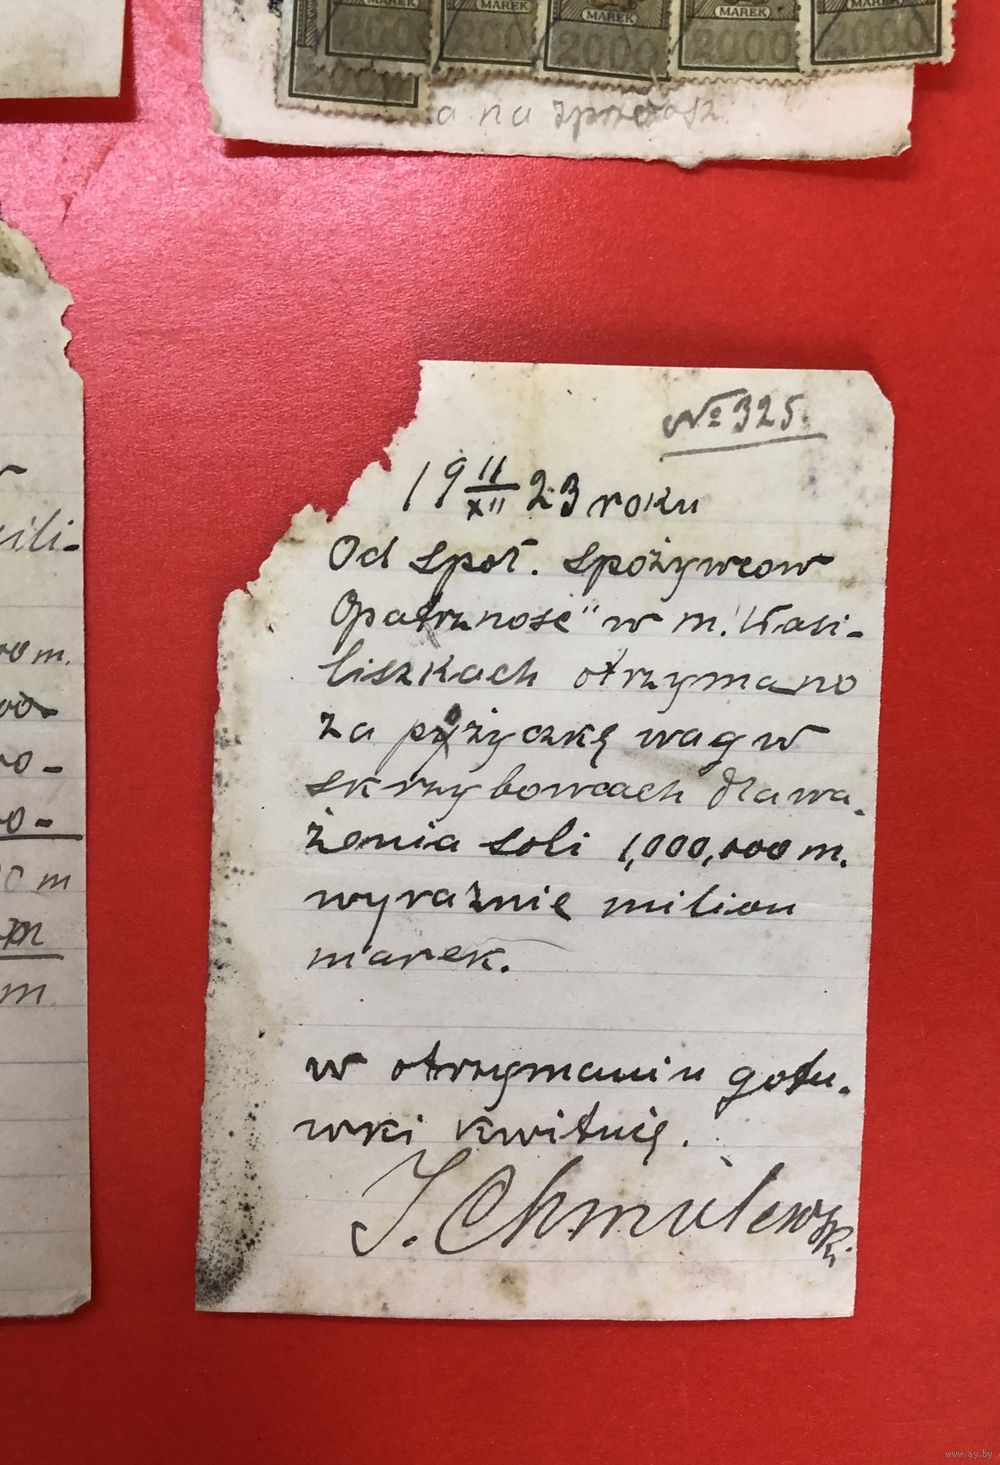 MAREK MAREK MAREK MAREK MAREK
2000 2000 2000 2000 2000
2000
a na sprzedasz.
№ 325.
19 11/XII 23 roku
Od społ. spożywcow
Opatrznosć" w m. Wasi-
liszkach otrzymano
za pożyczkę wag w
skrzybowcach dla wa-
żenia soli 1,000,000 m.
wyraznie milion
marek.
w otrzymaniu gotu-
wki kwituię.
J. Chmielewski
ili-
00 m.
00-
0-
0-
0 m
m
m
www.ay.by